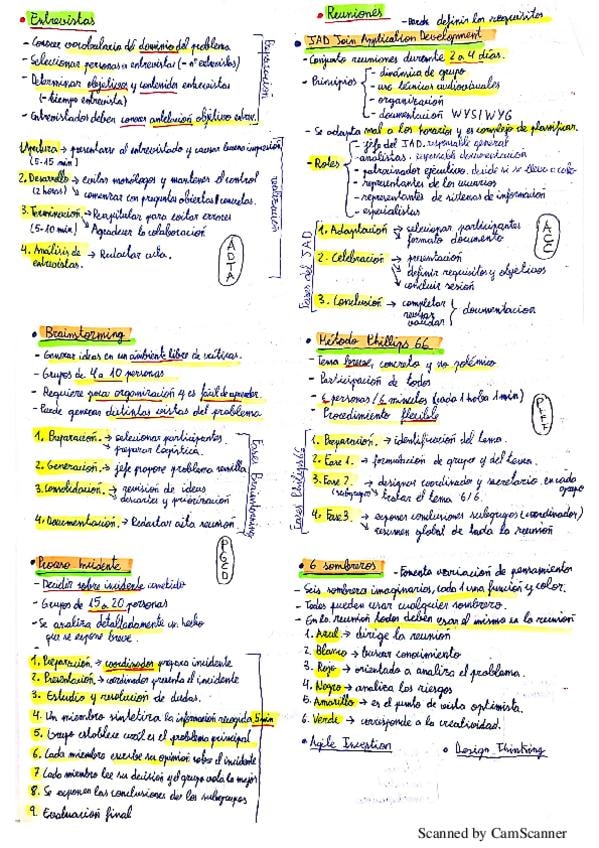 • Entrevistas
- Conocer vocabulario del dominio del problema
- Seleccionar personas a entrevistar (- nº entrevistas)
- Determinar objetivos y contenidos entrevistas
(- tiempo entrevista)
- Entrevistados deben conocer antelación objetivo entrev.
Preparación
Apertura → presentarse al entrevistado y causar buena impresión
(5-15 min)
2. Desarrollo → evitar monólogos y mantener el control
(2 horas) ↘ comenzar con preguntas abiertas/concretas.
3. Terminación → Recapitular para evitar errores
(5-10 min) ↘ Agradecer la colaboración
4. Análisis de → Redactar acta.
entrevistas.
realización
A
D
T
A
• Reuniones
- Donde definir los requisitos
• JAD Join Application Development
- Conjunto reuniones durante 2 a 4 días.
- Principios
- dinámica de grupo
- uso técnicas audiovisuales
- organización
- documentación WYSIWYG
- Se adapta mal a los horarios y es complejo de planificar.
- Roles
- jefe del JAD. responsable general
- analistas. responsable documentación
- patrocinador ejecutivo. decide si se lleva a cabo
- representantes de los usuarios
- representantes de sistemas de información
- especialistas
Fases del JAD
1. Adaptación → seleccionar participantes
↘ formato documento
2. Celebración → presentación
↘ definir requisitos y objetivos
↘ concluir sesión
3. Conclusión → completar
revisar
validar
documentación
A
C
C
• Brainstorming
- Generar ideas en un ambiente libre de críticas.
- Grupos de 4 a 10 personas
- Requiere poca organización y es fácil de aprender.
- Puede generar distintas vistas del problema
1. Preparación. → seleccionar participantes.
↘ preparar logística.
2. Generación → jefe propone problema semilla
3. Consolidación. → revisión de ideas
↘ descartes y priorización
4. Documentación. → Redactar acta reunión
Fases Brainstorming
P
G
C
D
• Método Phillips 66
- Tema breve, concreto y no polémico
- Participación de todos
- 6 personas / 6 minutos (cada 1 habla 1 min)
- Procedimiento flexible
P
F
F
F
Fases Phillips 66
1. Preparación. → identificación del tema.
2. Fase 1. → formulación de grupos y del tema.
3. Fase 2. → designar coordinador y secretario en cada grupo
(subgrupos) ↘ tratar el tema 6/6.
4. Fase 3. → exponer conclusiones subgrupos (coordinador)
↘ resumen global de toda la reunión
• Proceso Incidente
- Decidir sobre incidente cometido
- Grupos de 15 a 20 personas
- Se analiza detalladamente un hecho
que se expone breve.
1. Preparación. → coordinador prepara incidente
2. Presentación → coordinador presenta el incidente
3. Estudio y resolución de dudas.
4. Un miembro sintetiza la información recogida 5 min
5. Grupo establece cual es el problema principal
6. Cada miembro escribe su opinión sobre el incidente
7 Cada miembro lee su decisión y el grupo vota la mejor
8. Se exponen las conclusiones de los subgrupos
9. Evaluación final
• 6 sombreros
- Fomenta variación de pensamientos
- Seis sombreros imaginarios, cada 1 una función y color.
- Todos pueden usar cualquier sombrero.
- En la reunión todos deben usar el mismo en la reunión
1. Azul → dirige la reunión
2. Blanco → buscar conocimiento
3. Rojo → orientado a analiza el problema.
4. Negro → analiza los riesgos
5. Amarillo → es el punto de vista optimista.
6. Verde → corresponde a la creatividad.
• Agile Inception
• Design Thinking
Scanned by CamScanner